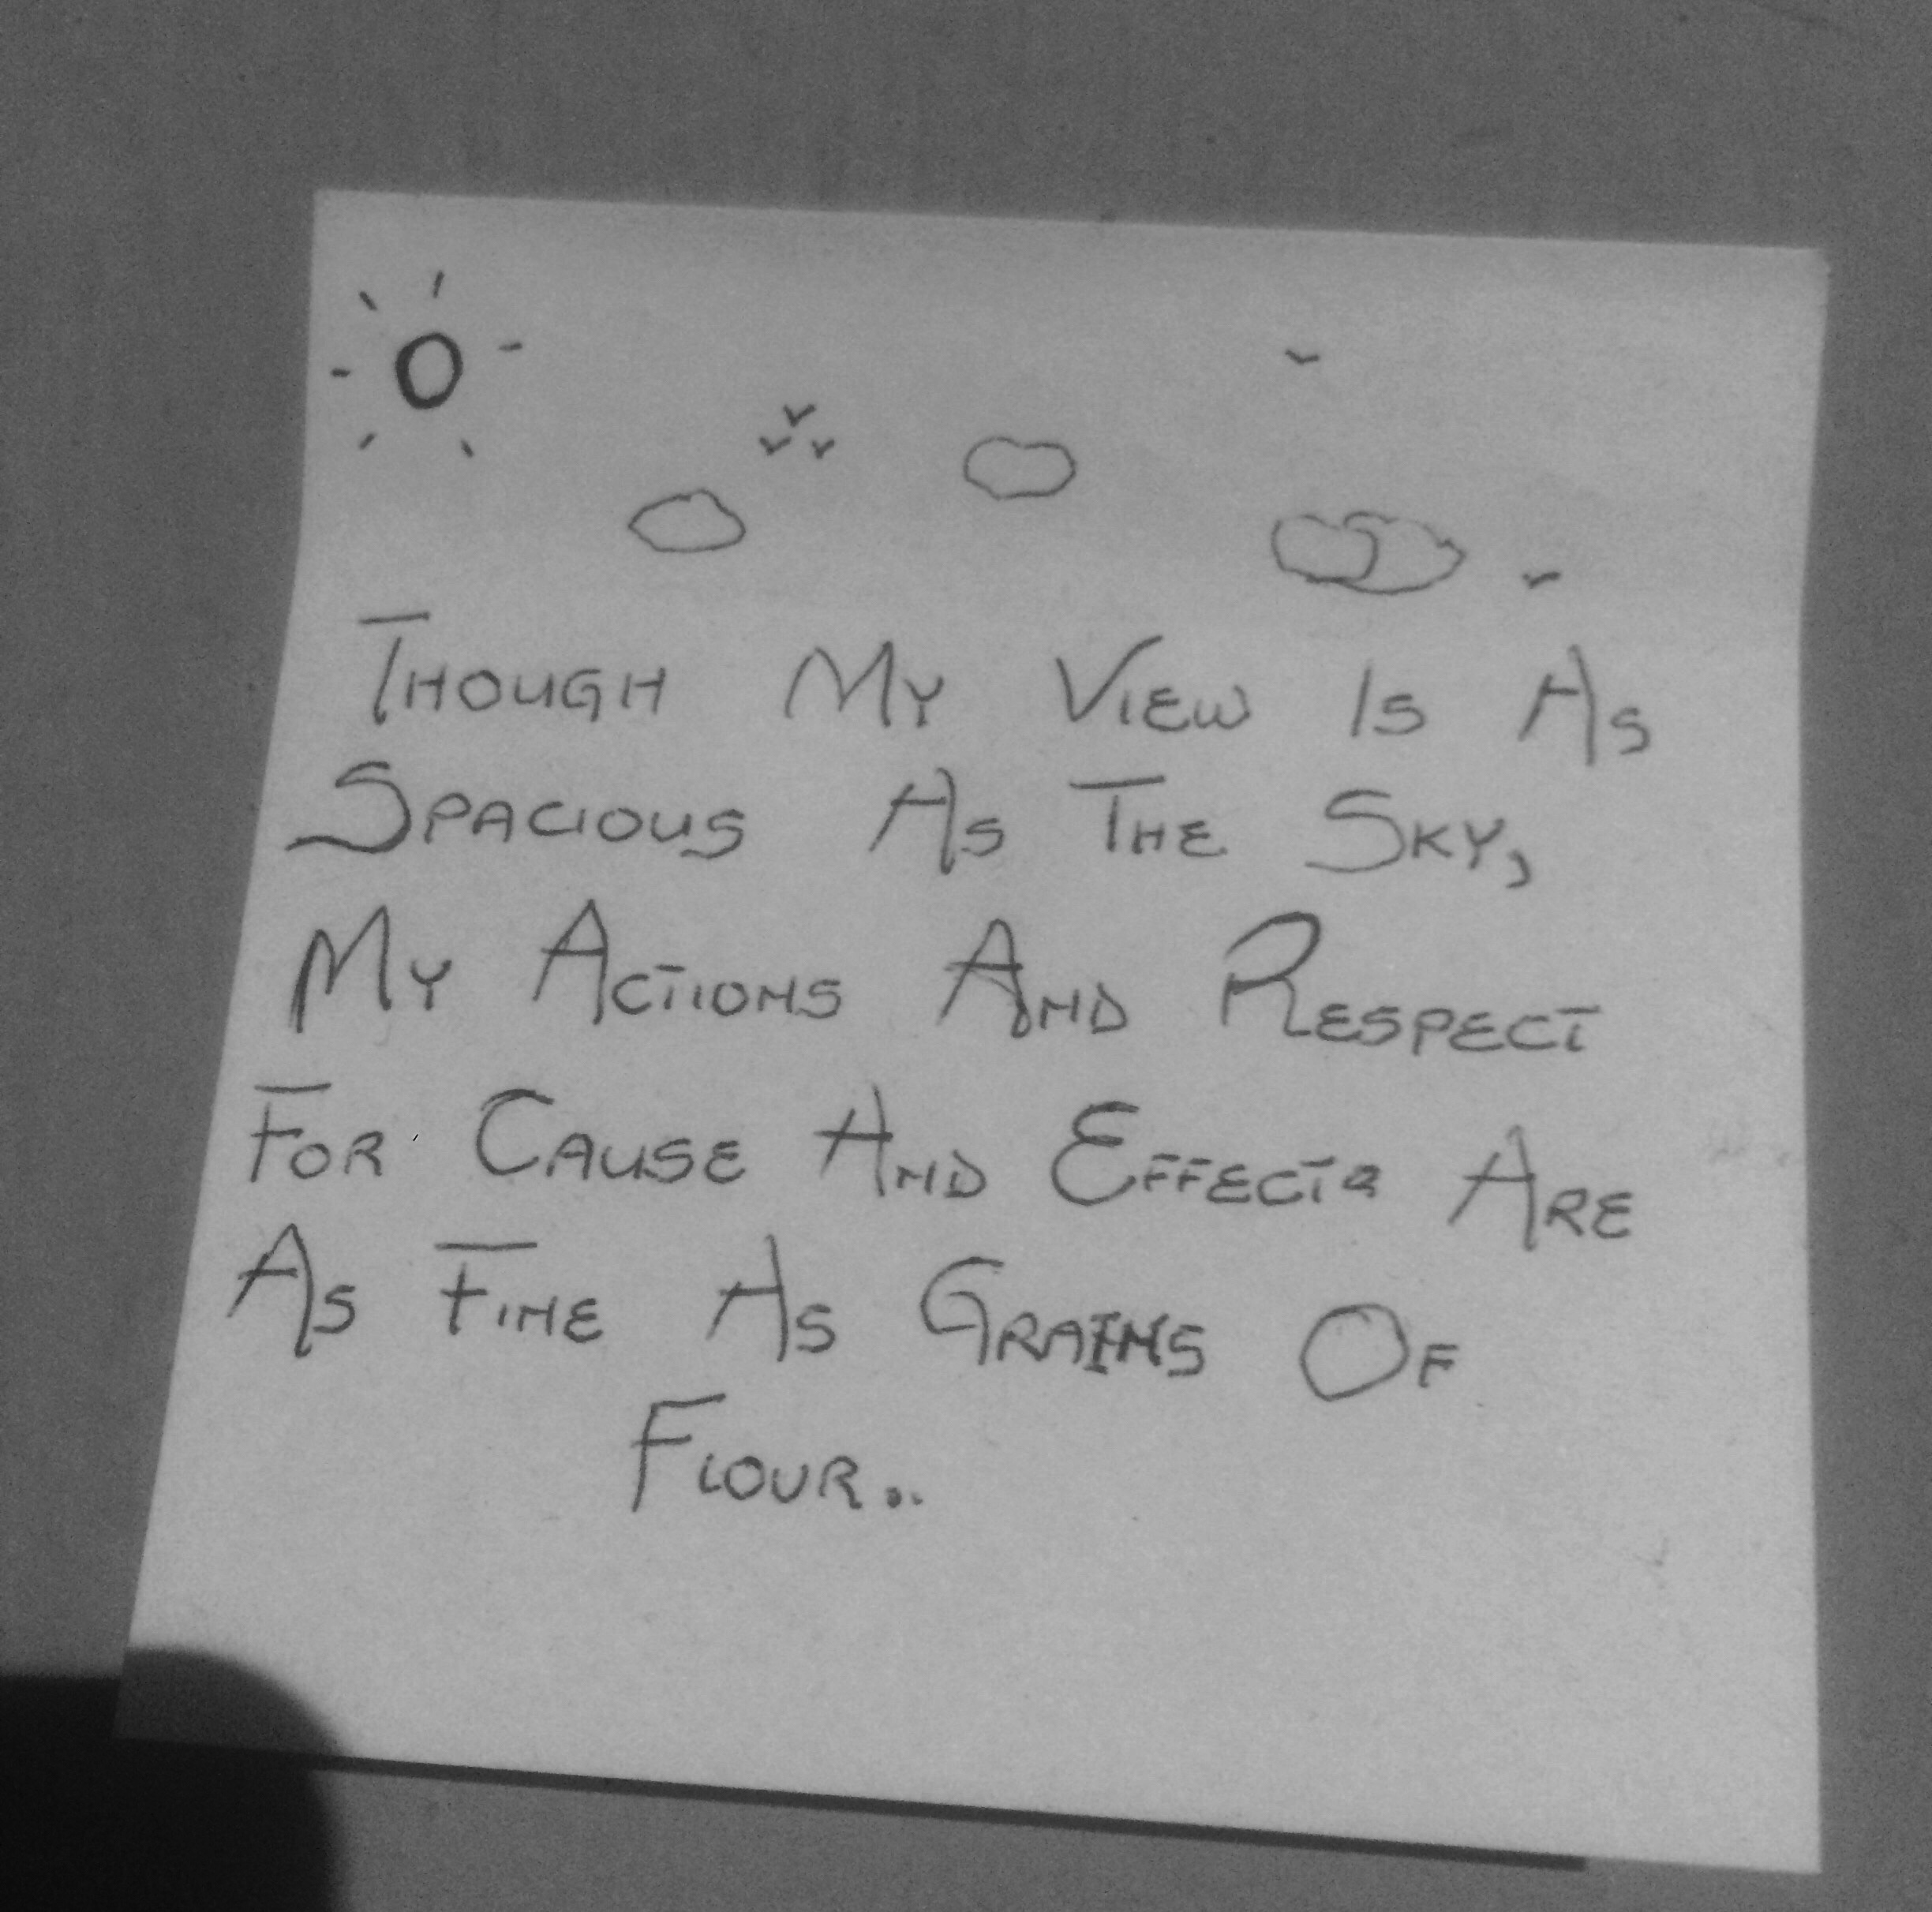 Though My View Is As
Spacious As The Sky,
My Actions And Respect
For Cause And Effects Are
As Fine As Grains Of
Flour..